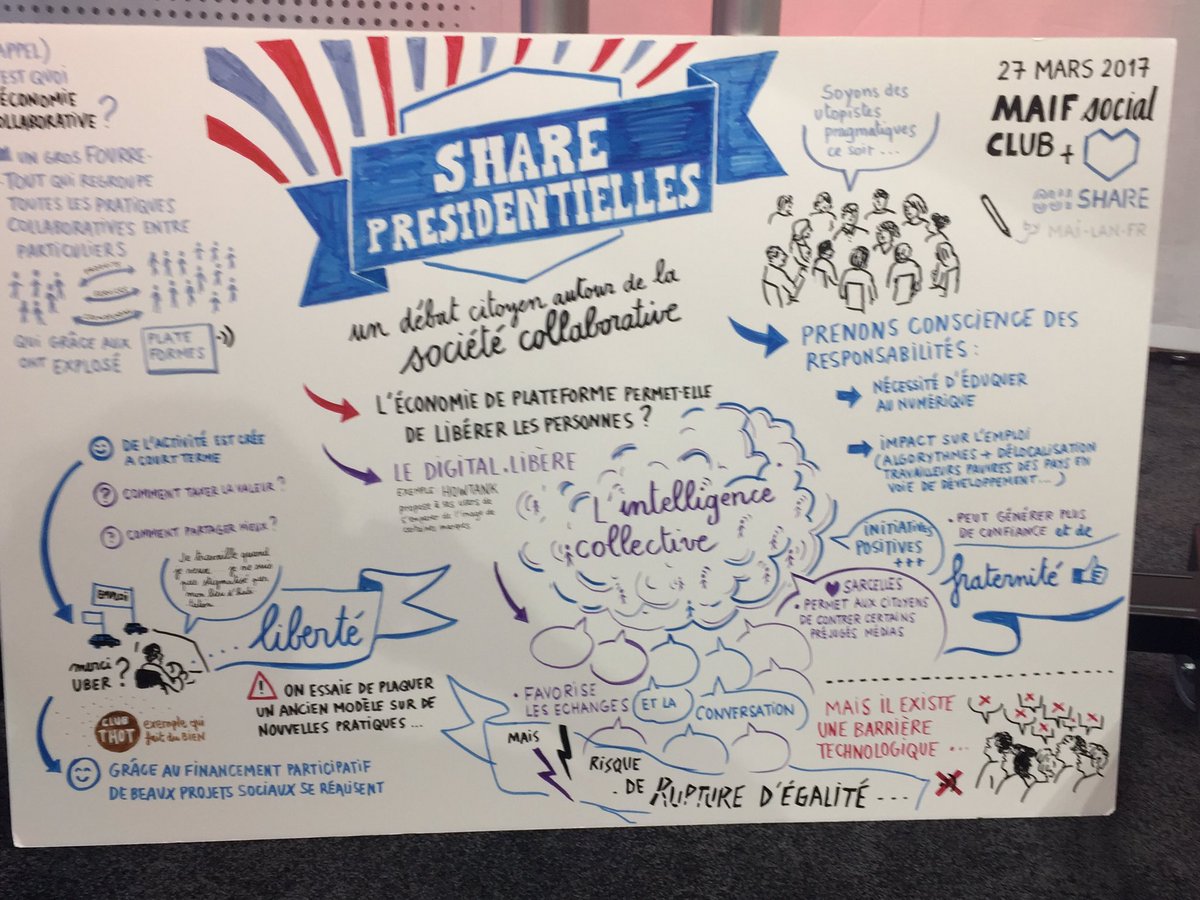 APPEL)
EST QUOI
ÉCONOMIE
OLLABORATIVE ?
UN GROS FOURRE-
TOUT QUI REGROUPE
TOUTES LES PRATIQUES
COLLABORATIVES ENTRE
PARTICULIERS
QUI GRÂCE AUX
ONT EXPLOSÉ
PLATE
FORMES
SHARE
PRESIDENTIELLES
un débat citoyen autour de la
société collaborative
27 MARS 2017
MAIF social
CLUB +
OUISHARE
by MAI-LAN.FR
Soyons des
utopistes
pragmatiques
ce soir ...
PRENONS CONSCIENCE DES
RESPONSABILITÉS :
NÉCESSITÉ D'ÉDUQUER
AU NUMÉRIQUE
IMPACT SUR L'EMPLOI
(ALGORYTHMES + DÉLOCALISATION
TRAVAILLEURS PAUVRES DES PAYS EN
VOIE DE DÉVELOPPEMENT...)
L'ÉCONOMIE DE PLATEFORME PERMET-ELLE
DE LIBÉRER LES PERSONNES ?
LE DIGITAL LIBÈRE
EXEMPLE HOWTANK
propose à ses users de
s'emparer de l'image de
certaines marques.
L'intelligence
collective
INITIATIVES
POSITIVES
+++
• PEUT GÉNÉRER PLUS
DE CONFIANCE et de
fraternité
SARCELLES
• PERMET AUX CITOYENS
DE CONTRER CERTAINS
PRÉJUGÉS MÉDIAS
DE L'ACTIVITÉ EST CRÉÉE
A COURT TERME
? COMMENT TAXER LA VALEUR ?
? COMMENT PARTAGER MIEUX ?
Je travaille quand
je veux je ne suis
pas stigmatisé par
mon lieu d'habi
tation
EMPLOI
merci
UBER ?
... liberté
ON ESSAIE DE PLAQUER
UN ANCIEN MODÈLE SUR DE
NOUVELLES PRATIQUES ...
CLUB
THOT
exemple qui
fait du BIEN
GRÂCE AU FINANCEMENT PARTICIPATIF
DE BEAUX PROJETS SOCIAUX SE RÉALISENT
• FAVORISE
LES ECHANGES
ET LA
CONVERSATION
MAIS
RISQUE
. DE RUPTURE D'ÉGALITÉ ...
MAIS IL EXISTE
UNE BARRIÈRE
TECHNOLOGIQUE ...